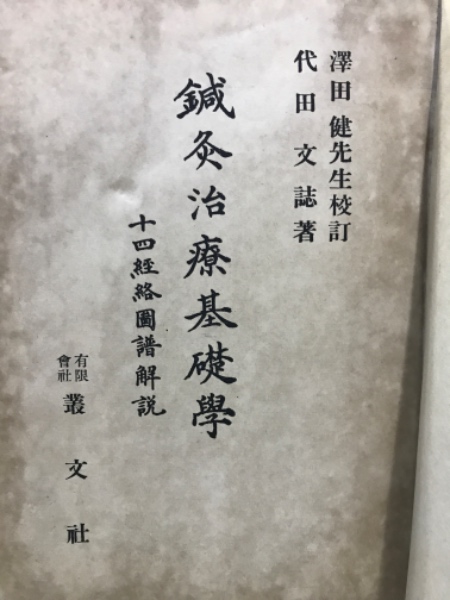 澤田健先生校訂
代田文誌著
鍼灸治療基礎學
十四經絡圖譜解説
有限會社
叢文社